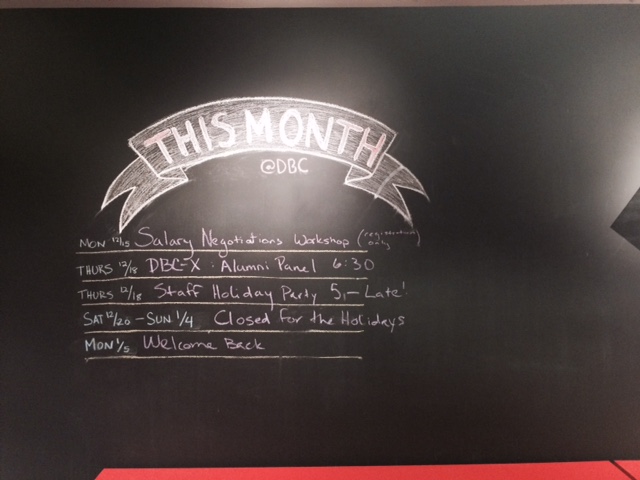 THIS MONTH
@DBC
MON 12/15 Salary Negotiations Workshop (registration only)
THURS 12/18 DBC-X: Alumni Panel 6:30
THURS 12/18 Staff Holiday Party 5,— Late!
SAT 12/20 – SUN 1/4 Closed for the Holidays
MON 1/5 Welcome Back